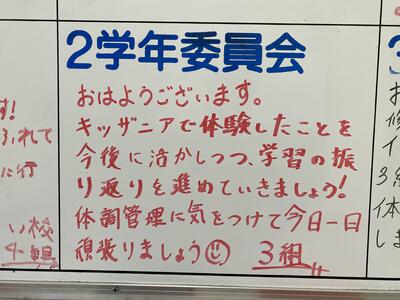 2学年委員会
おはようございます。
キッザニアで体験したことを
今後に活かしつつ、学習の振
り返りを進めていきましょう!
体調管理に気をつけて今日一日
頑張りましょう
3組
す!
れて
に行
い校
3
お
修
イ
3組
体
しま